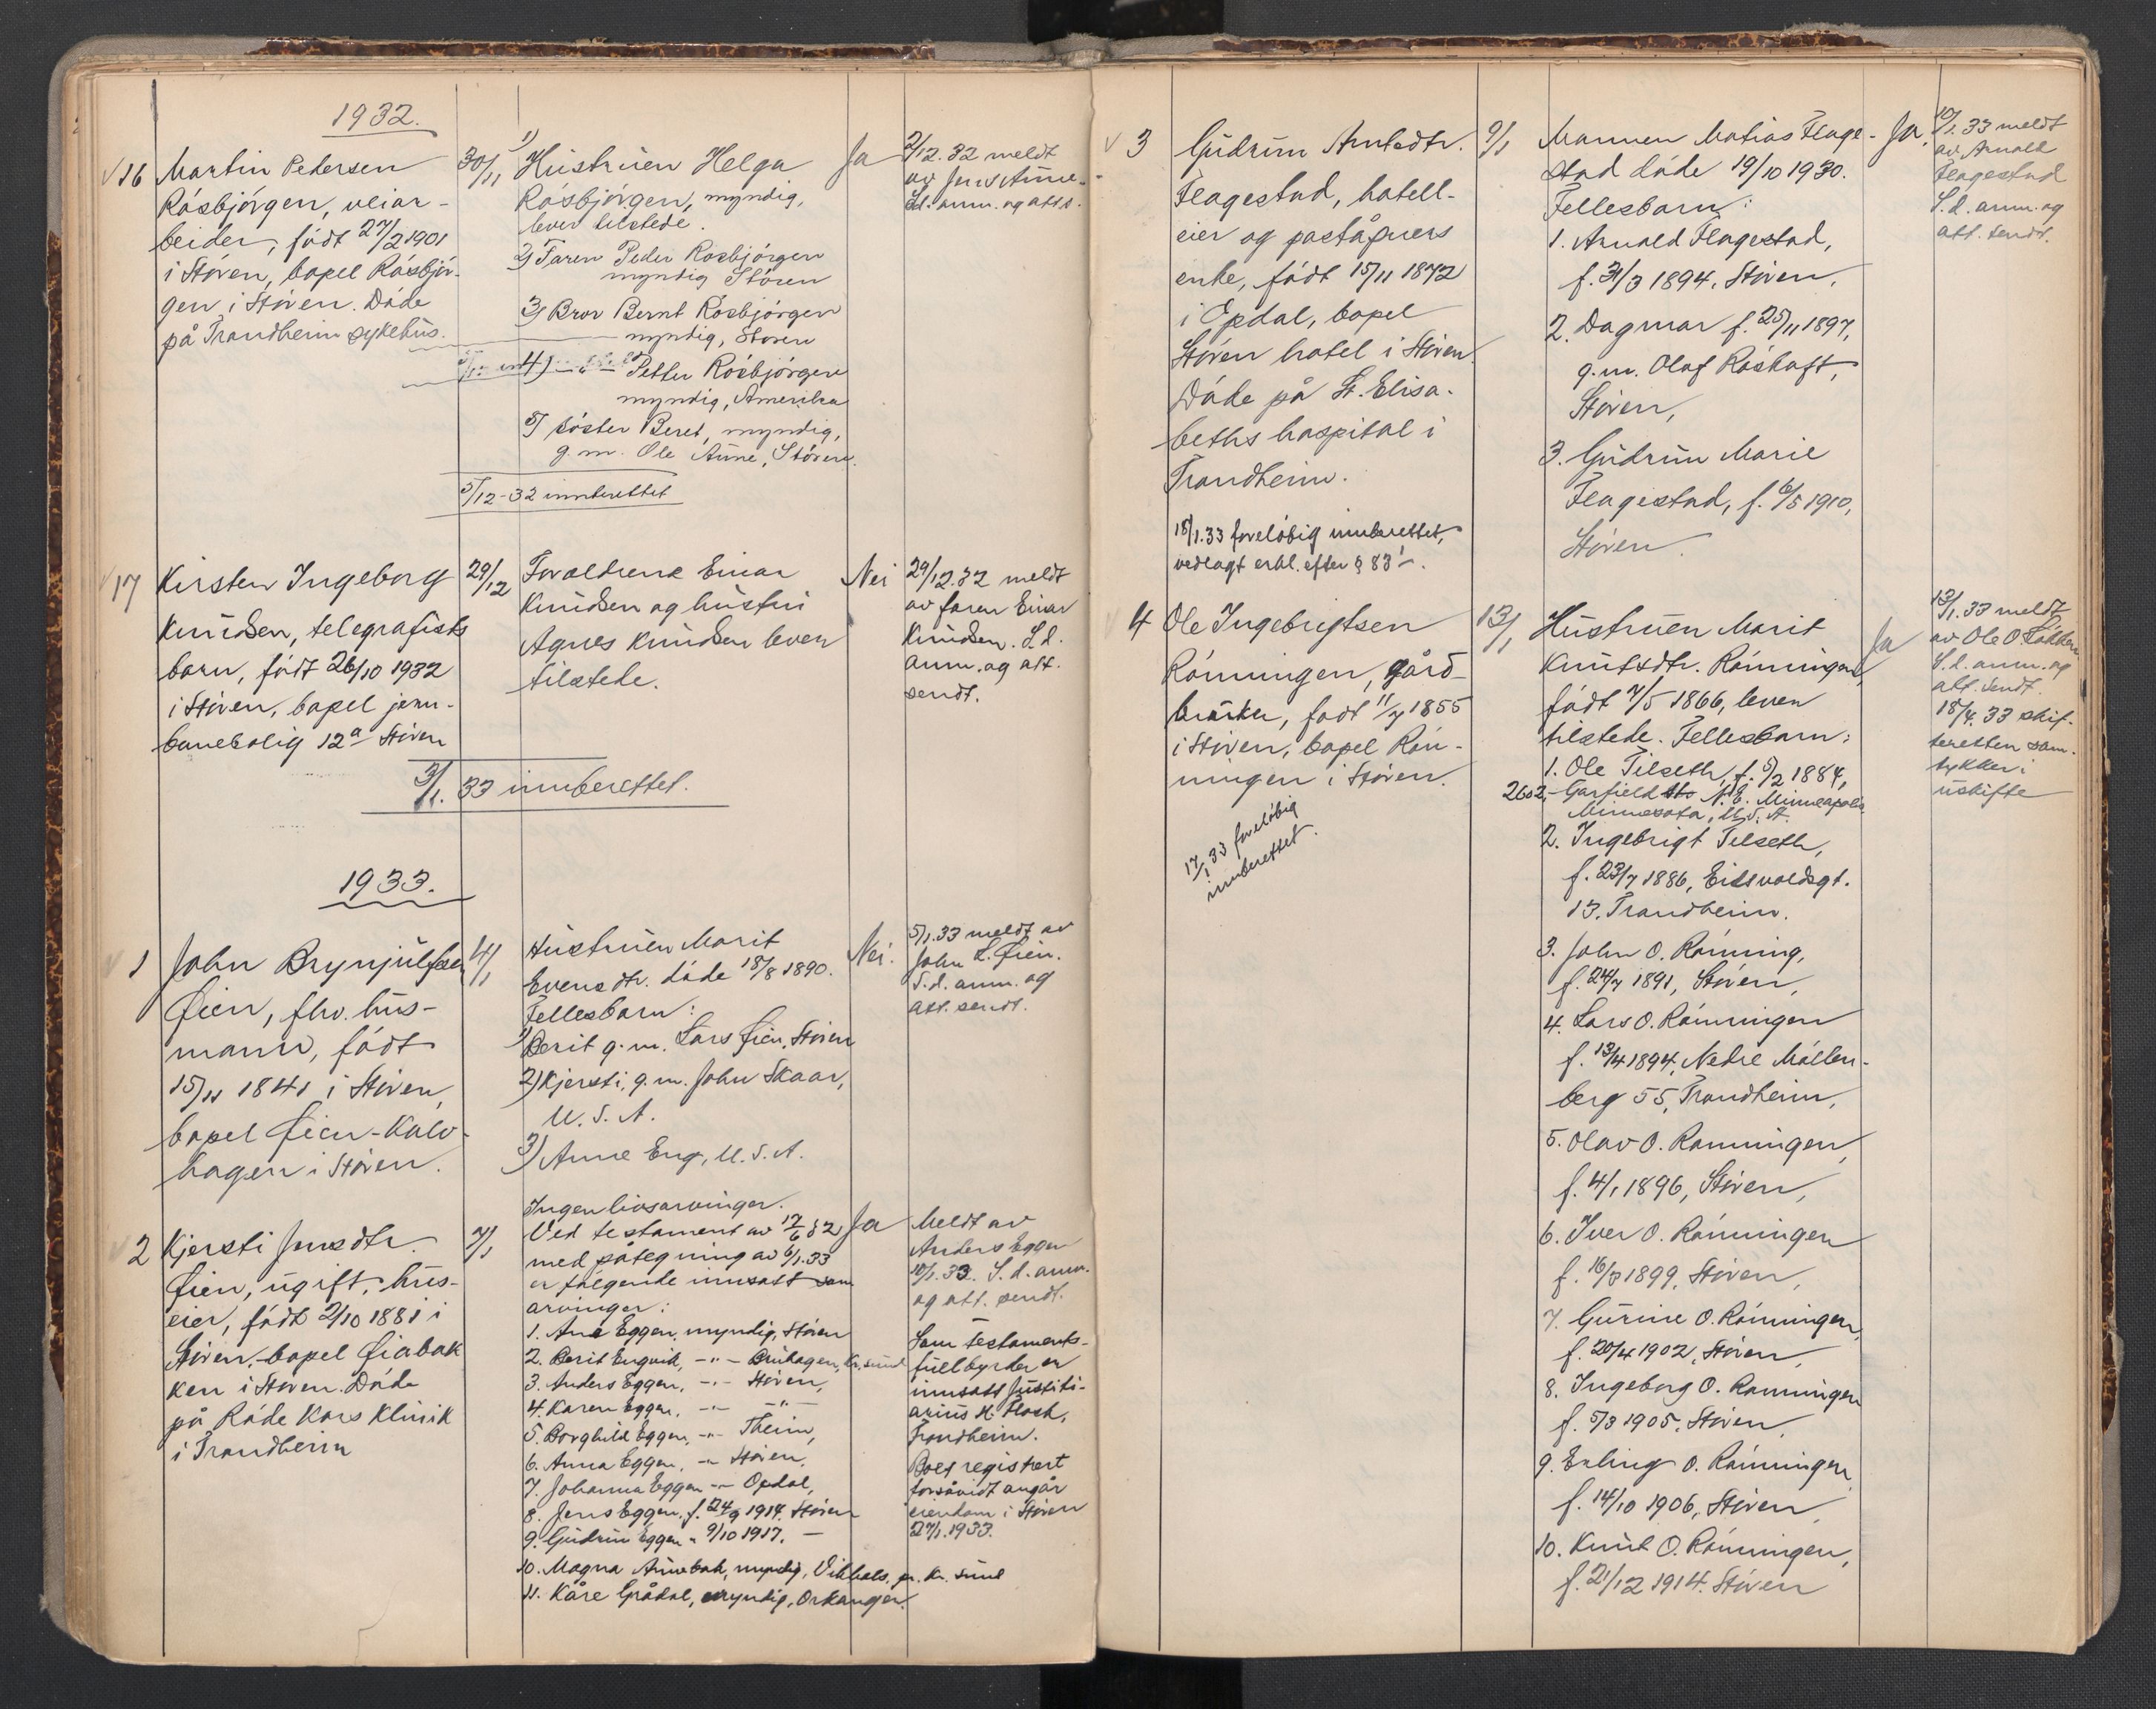 1932.
16 Martin Petersen
Rósbjörgen, veiar-
beider, född 27/2 1901
i Stören, bopel Rósbjör-
gen i Stören. Döde
på Trondheim sykehus.
30/11
1) Hustruen Helga
Rósbjörgen, myndig,
lever tilstede.
2) Faren Peder Rosbjörgen
myndig Stören
3) Bror Bernt Rósbjörgen
myndig, Stören
4) — " — Petter Rósbjörgen
myndig, Amerika
5) söster Beret, myndig,
g.m. Ole Aune, Stören.
5/12-32 innberettet
Ja
2/12.32 meldt
av Jens Aune.
S.d. anm. og att s.
17 Kirsten Ingeborg
Knudsen, telegrafists
barn, född 26/10 1932
i Stören, bopel jern-
banebolig 12a Stören
29/12
Foreldrene Einar
Knudsen og hustru
Agnes Knudsen lever
tilstede.
Nei
29/12.32 meldt
av faren Einar
Knudsen. S.d.
anm. og att.
sendt.
3/1.33 innberettet.
1933.
1 John Brynjulfsen
Øien, fhv. hus-
mann, född
15/11 1841 i Stören,
bopel Øien-Kalv-
hagen i Stören.
4/1
Hustruen Marit
Evensdtr. döde 18/8 1890.
Fellesbarn:
1) Berit g.m. Lars Øien, Stören
2) Kjersti, g.m. John Skaar,
U.S.A.
3) Anne Eng, U.S.A.
Nei.
5/1.33 meldt av
John L. Øien.
S.d. anm. og
att. sendt.
2 Kjersti Jensdtr.
Øien, ugift, hus-
eier, född 2/10 1881 i
Stören, bopel Øiabak
ken i Stören. Döde
på Röde Kors Klinik
i Trondheim
7/1
Ingen livsarvinger.
Ved testament av 17/6 32
med påtegning av 6/1.33
er fölgende innsatt som
arvinger:
1. Ane Eggen, myndig, Stören
2. Berit Engvik, -"- Bruhagen, Kr.sund
3. Anders Eggen, -"- Stören,
4. Karen Eggen, -"- -"-
5. Borghild Eggen, -"- Theim,
6. Anna Eggen, -"- Stören,
7. Johanna Eggen -"- Opdal,
8. Jens Eggen, f. 24/9 1914. Stören
9. Gudrun Eggen " 9/10 1917. —
10. Magna Aunebak, myndig, Vikhals, pr. Kr. sund
11. Kåre Grådal, myndig, Orkanger.
Ja
Meldt av
Anders Eggen
10/1.33. S.d. anm.
og att. sendt.
Som testaments-
fullbyrder er
innsatt Justiti-
arius H. Flock,
Trondheim.
Boet registrert
forsåvidt angår
eiendom i Stören
27/1.1933.
3 Gudrun Arntsdtr.
Flagestad, hotell-
eier og poståpners
enke, född 15/11 1872
i Opdal, bopel
Stören hotel i Stören.
Döde på St. Elisa-
beths hospital i
Trondheim.
18/1.33 forelöbig innberettet,
vedlagt erkl. efter § 83
9/1
Mannen Matias Flage-
stad döde 19/10 1930.
Fellesbarn:
1. Arnold Flagestad,
f. 31/3 1894, Stören,
2. Dagmar f. 25/11 1897,
g.m. Olaf Röskaft,
Stören,
3. Gudrun Marie
Flagestad, f. 6/5 1910,
Stören.
Ja.
10/1.33 meldt
av Arnold
Flagestad
S.d. anm. og
att. sendt.
4 Ole Ingebrigtsen
Rönningen, gård-
bruker, född 11/7 1855
i Stören, bopel Rön-
ningen i Stören.
17/1 33 forelöbig
innberettet.
13/1
Hustruen Marit
Knutsdtr. Rönningen,
född 7/5 1866, lever
tilstede. Fellesbarn:
1. Ole Tilseth, f. 5/2 1884,
2602, Garfield N.E. Minneapolis
Minnesota, U.S.A.
2. Ingebrigt Tilseth,
f. 23/7 1886, Eidsvoldsgt.
13. Trondheim.
3. John O. Rönning,
f. 24/7 1891, Stören,
4. Lars O. Rönningen
f. 13/4 1894, Nedre Möllen-
berg 55, Trondheim,
5. Olav O. Rönningen,
f. 4/1 1896, Stören,
6. Iver O. Rönningen
f. 16/8 1899, Stören,
7. Gurine O. Rönningen,
f. 20/4 1902, Stören,
8. Ingeborg O. Rönningen
f. 5/3 1905, Stören,
9. Erling O. Rönningen,
f. 14/10 1906, Stören,
10. Knut O. Rönningen,
f. 21/12 1914. Stören
Ja
13/1.33 meldt
av Ole O.
S.d. anm. og
att. sendt.
18/4.33 skif-
teretten sam-
tykker i
uskifte